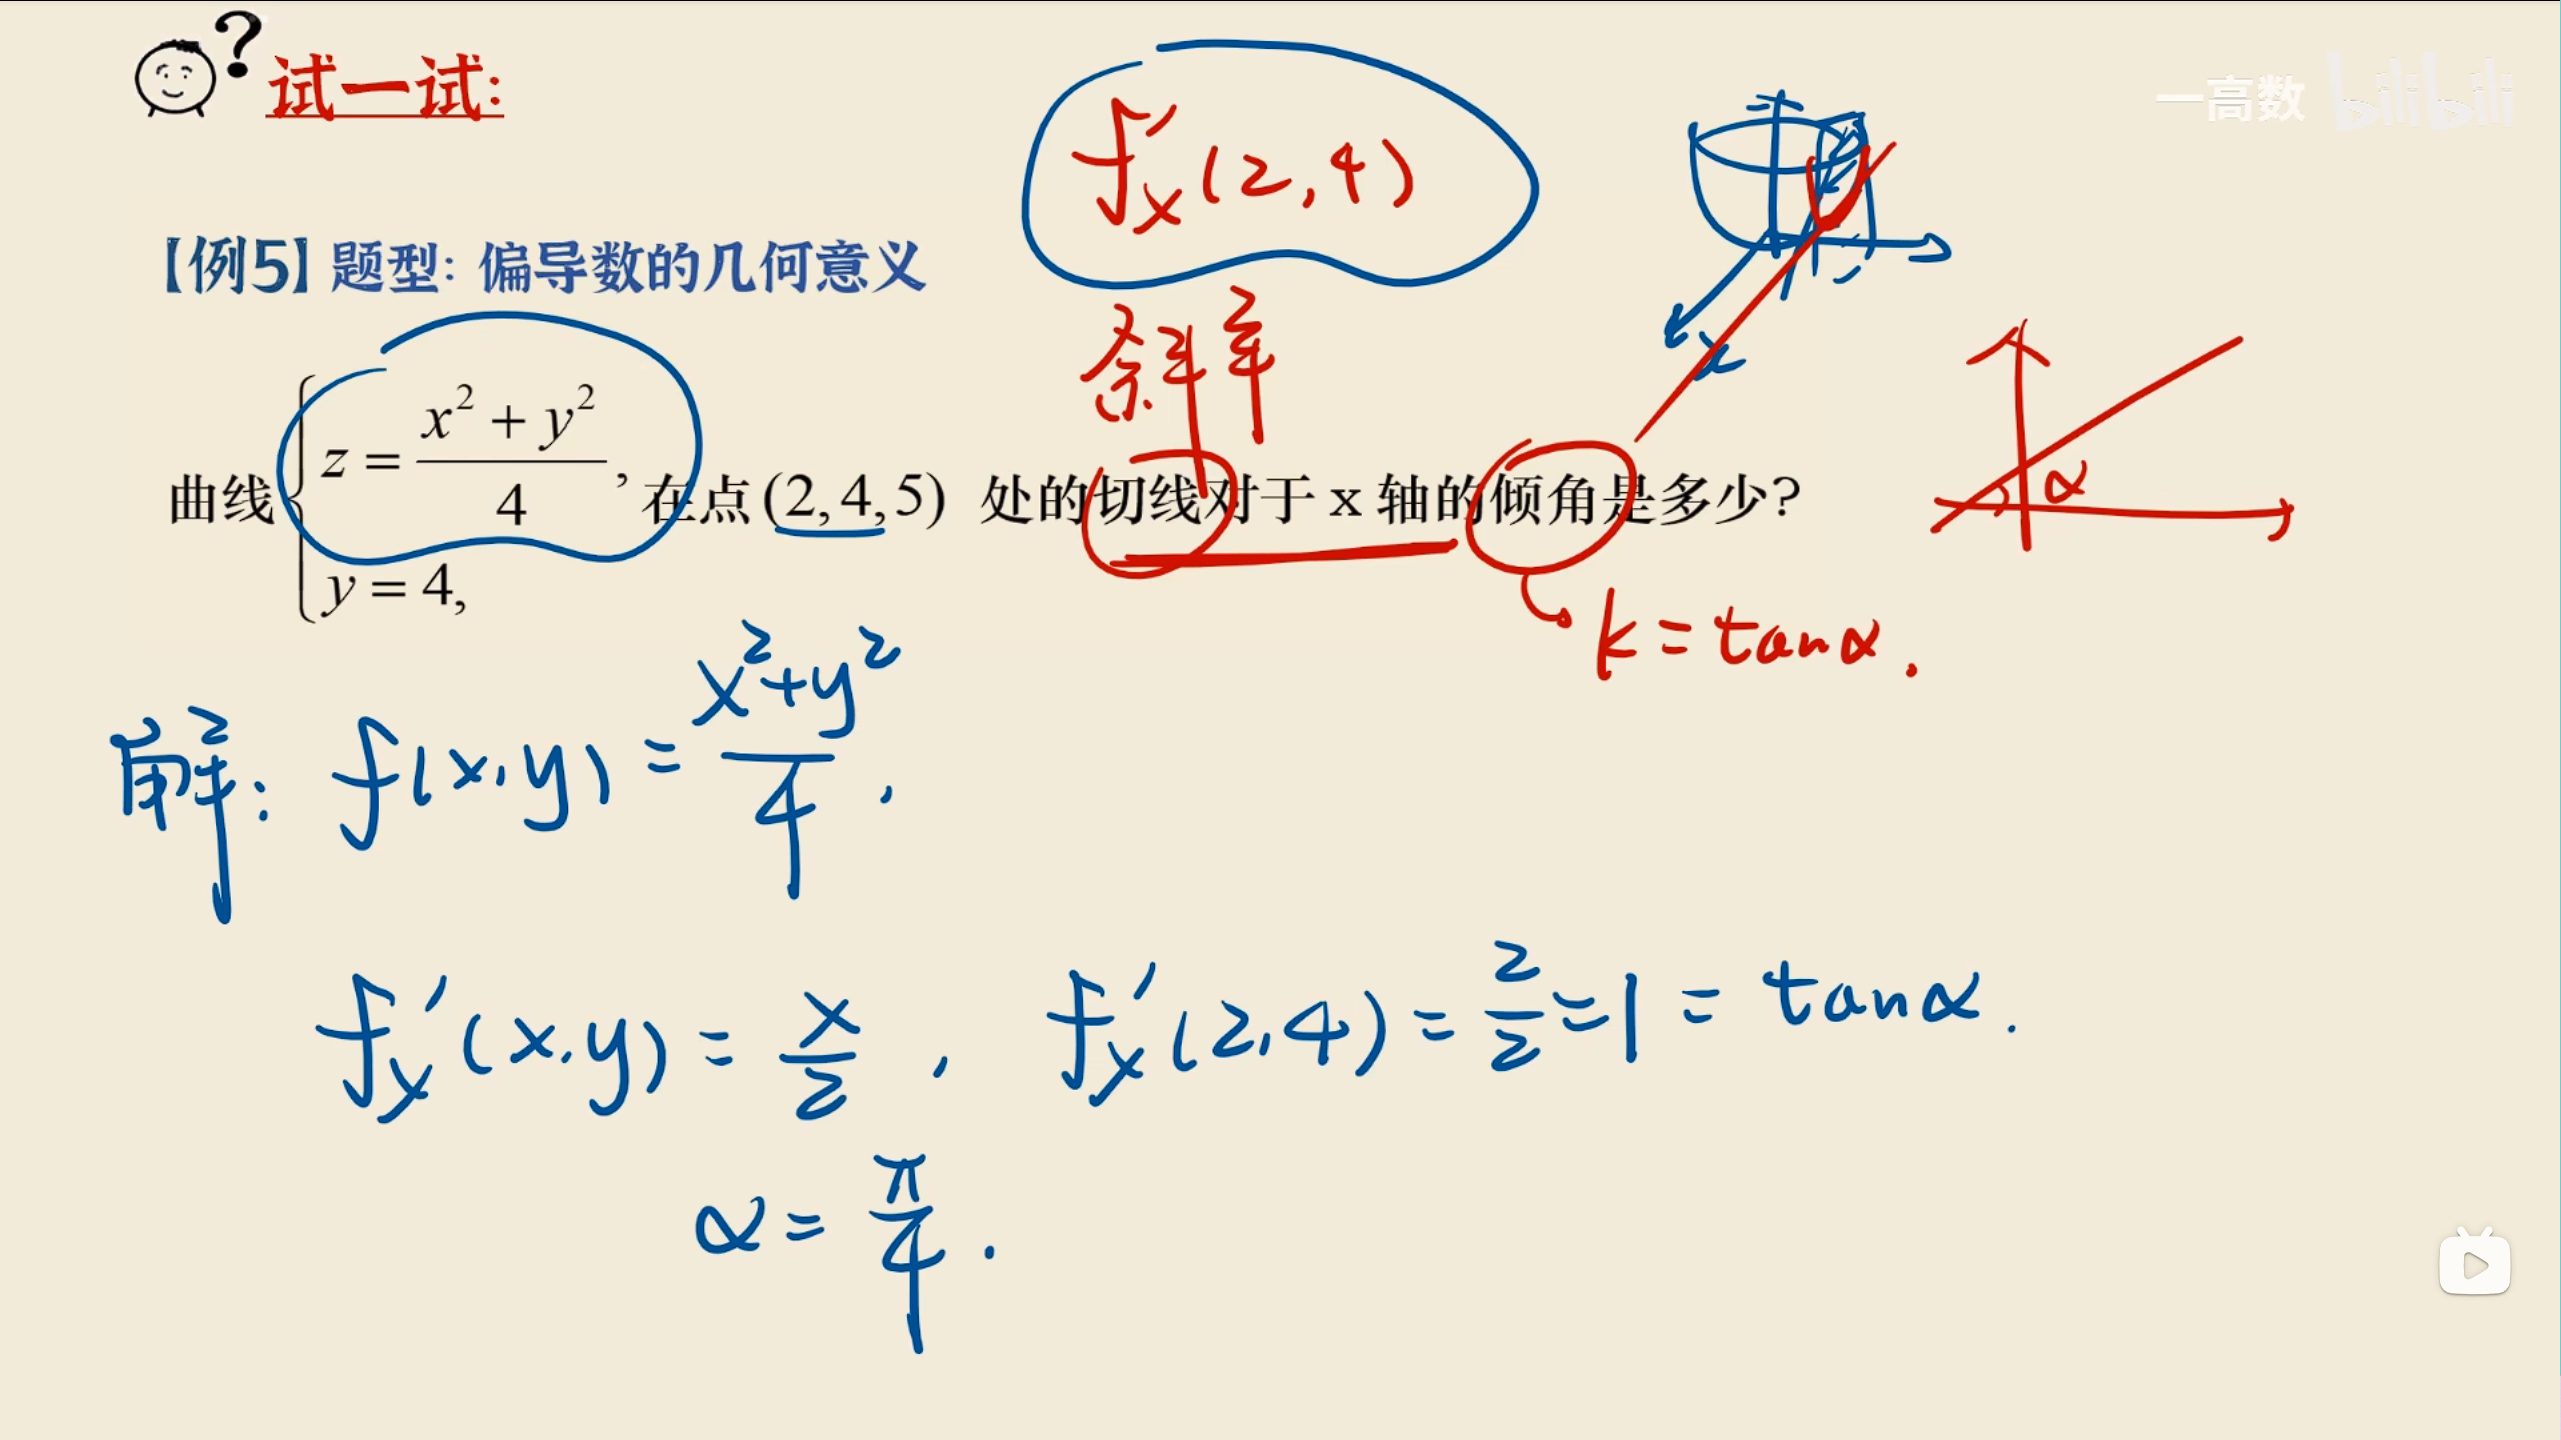 试一试:
一高数 bilibili
f'x(2,4)
【例5】题型: 偏导数的几何意义
x
斜率
曲线 { z = (x² + y²)/4, y = 4, 在点(2,4,5) 处的切线对于 x 轴的倾角是多少?
α
k = tanα.
解: f(x,y) = (x²+y²)/4,
f'x(x,y) = x/2, f'x(2,4) = 2/2 = 1 = tanα.
α = π/4.